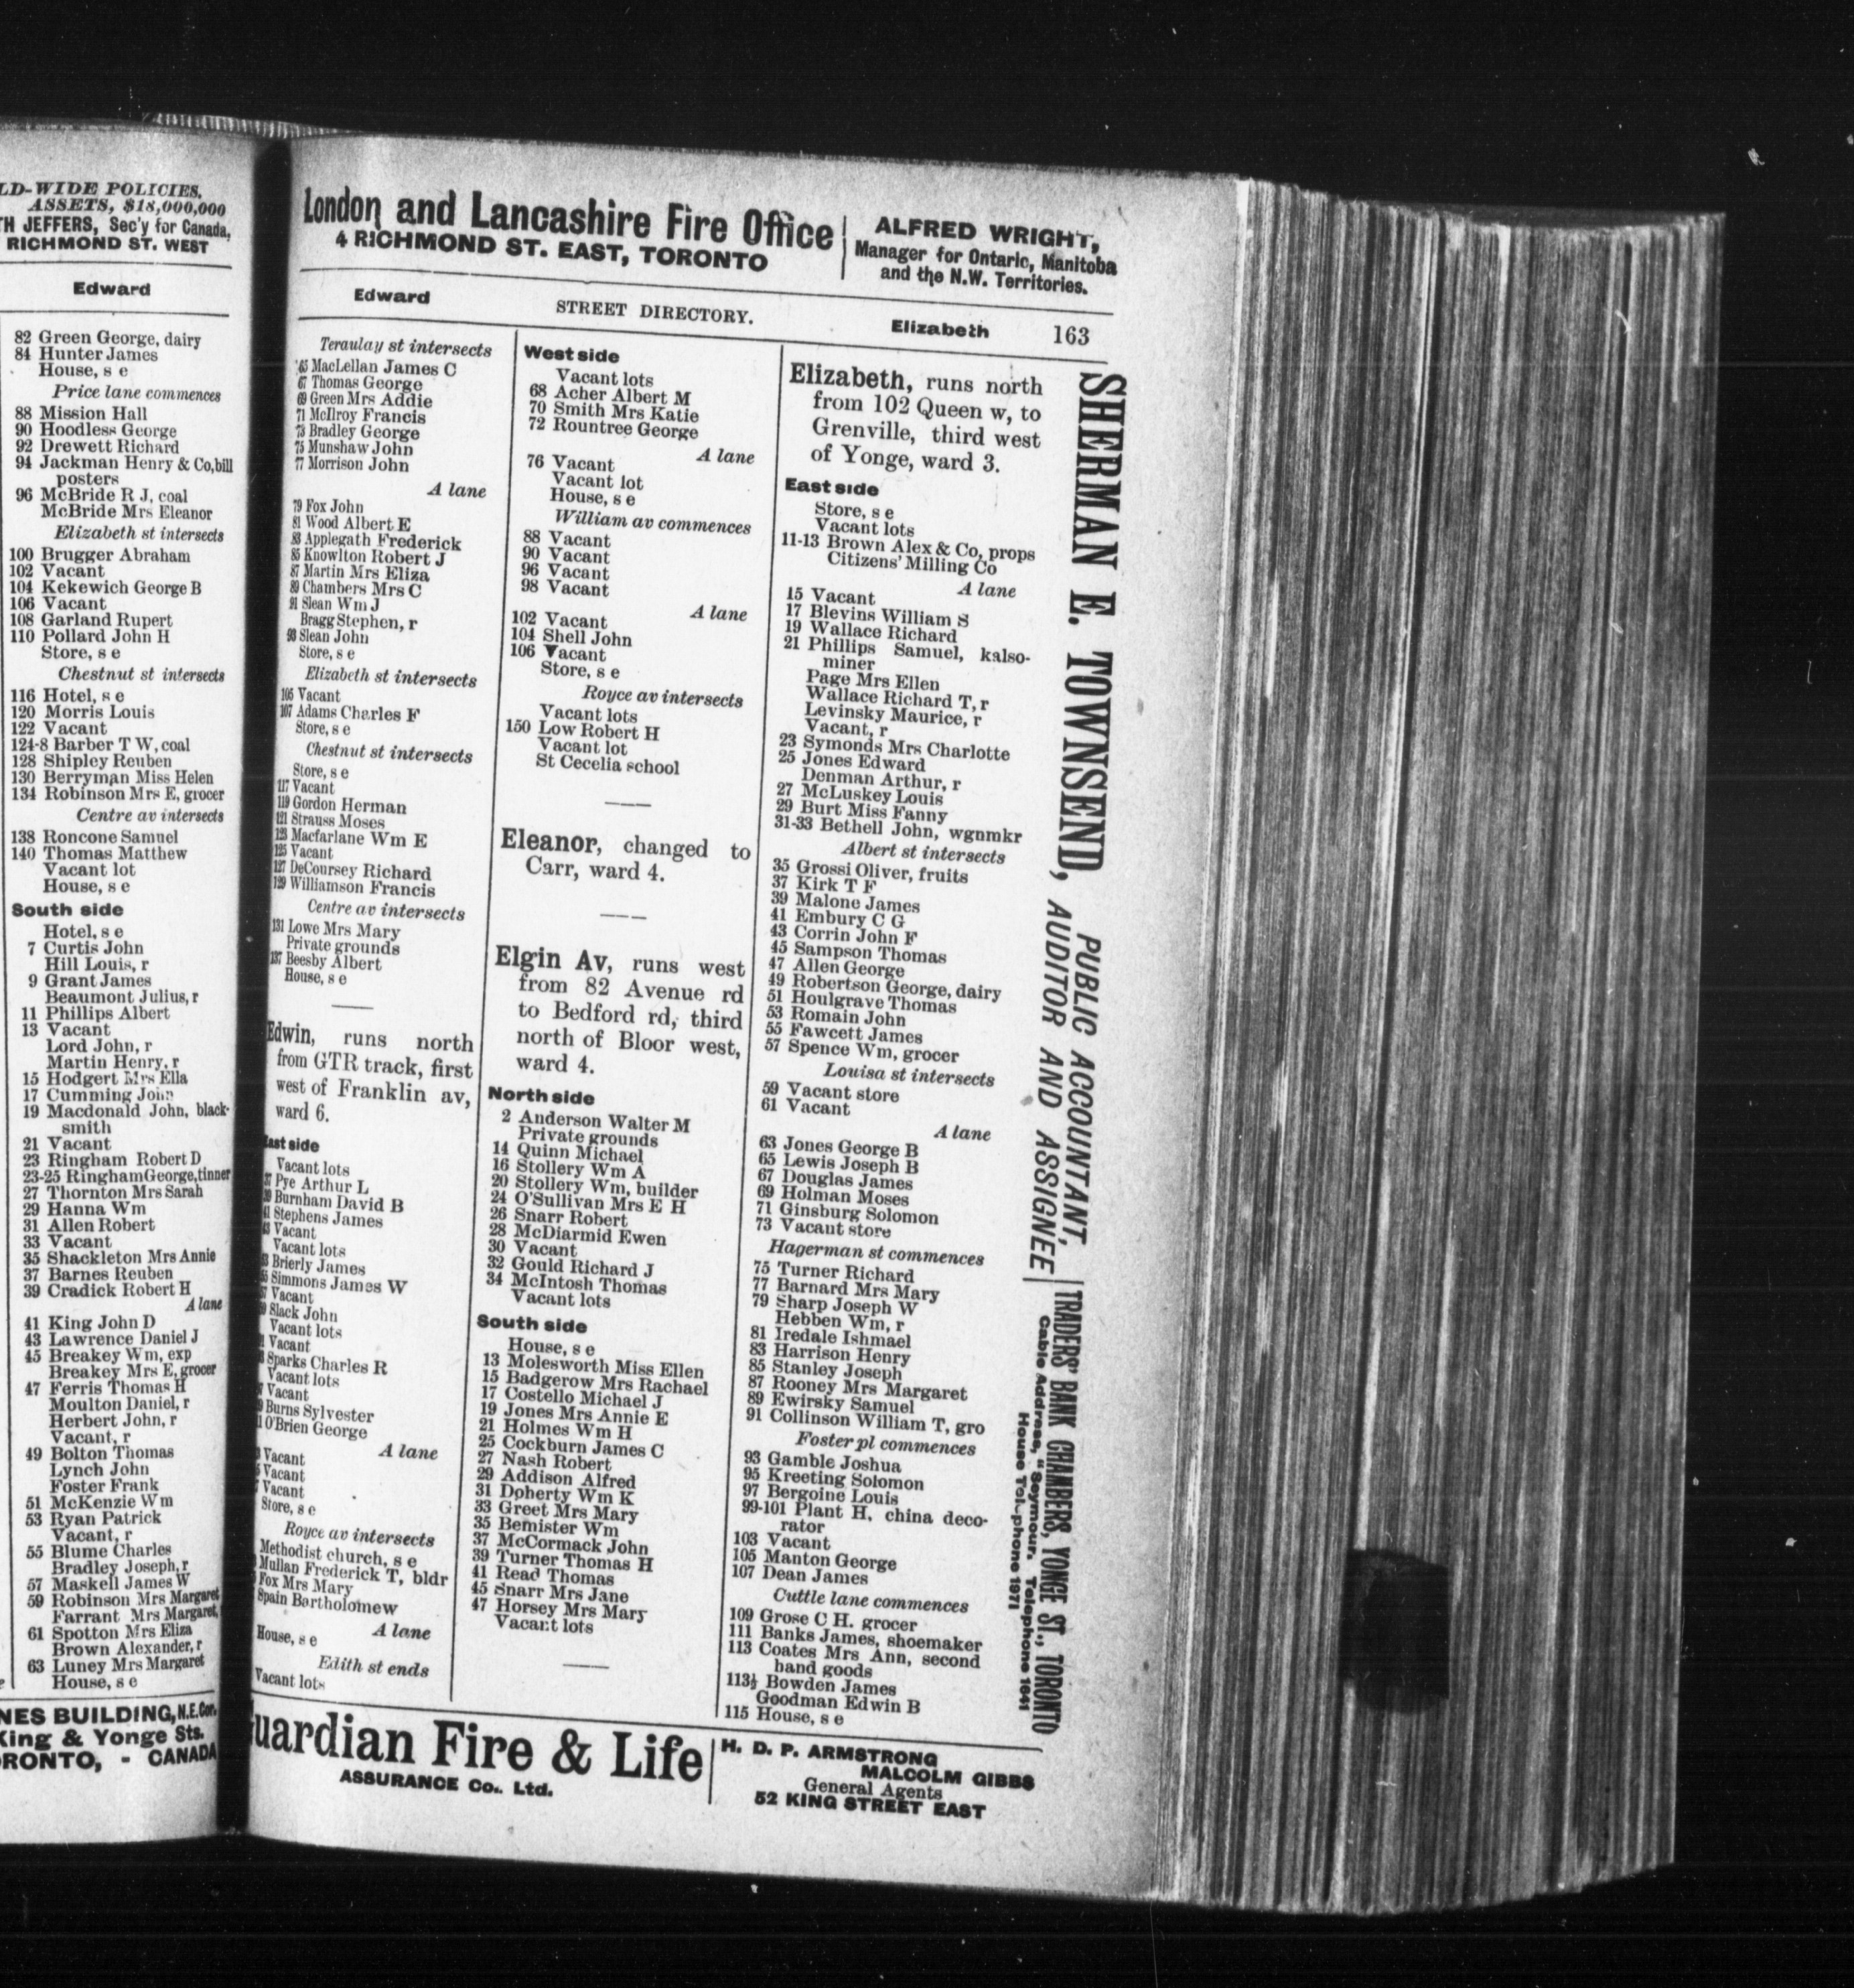 LD-WIDE POLICIES,
ASSETS, $18,000,000
TH JEFFERS, Sec'y for Canada,
RICHMOND ST. WEST
Edward
82 Green George, dairy
84 Hunter James
House, s e
Price lane commences
88 Mission Hall
90 Hoodless George
92 Drewett Richard
94 Jackman Henry & Co, bill
posters
96 McBride R J, coal
McBride Mrs Eleanor
Elizabeth st intersects
100 Brugger Abraham
102 Vacant
104 Kekewich George B
106 Vacant
108 Garland Rupert
110 Pollard John H
Store, s e
Chestnut st intersects
116 Hotel, s e
120 Morris Louis
122 Vacant
124-8 Barber T W, coal
128 Shipley Reuben
130 Berryman Miss Helen
134 Robinson Mrs E, grocer
Centre av intersects
138 Roncone Samuel
140 Thomas Matthew
Vacant lot
House, s e
South side
Hotel, s e
7 Curtis John
Hill Louis, r
9 Grant James
Beaumont Julius, r
11 Phillips Albert
13 Vacant
Lord John, r
Martin Henry, r
15 Hodgert Mrs Ella
17 Cumming John
19 Macdonald John, black-
smith
21 Vacant
23 Ringham Robert D
23-25 Ringham George, tinner
27 Thornton Mrs Sarah
29 Hanna Wm
31 Allen Robert
33 Vacant
35 Shackleton Mrs Annie
37 Barnes Reuben
39 Cradick Robert H
A lane
41 King John D
43 Lawrence Daniel J
45 Breakey Wm, exp
Breakey Mrs E, grocer
47 Ferris Thomas H
Moulton Daniel, r
Herbert John, r
Vacant, r
49 Bolton Thomas
Lynch John
Foster Frank
51 McKenzie Wm
53 Ryan Patrick
Vacant, r
55 Blume Charles
Bradley Joseph, r
57 Maskell James W
59 Robinson Mrs Margaret
Farrant Mrs Margaret,
61 Spotton Mrs Eliza
Brown Alexander, r
63 Luney Mrs Margaret
House, s e
NES BUILDING, N.E. Cor.
King & Yonge Sts.
RONTO, - CANADA
London and Lancashire Fire Office
4 RICHMOND ST. EAST, TORONTO
ALFRED WRIGHT,
Manager for Ontario, Manitoba
and the N.W. Territories.
Edward STREET DIRECTORY. Elizabeth 163
Teraulay st intersects
65 MacLellan James C
67 Thomas George
69 Green Mrs Addie
71 McIlroy Francis
73 Bradley George
75 Munshaw John
77 Morrison John
A lane
79 Fox John
81 Wood Albert E
83 Applegath Frederick
85 Knowlton Robert J
87 Martin Mrs Eliza
89 Chambers Mrs C
91 Slean Wm J
Bragg Stephen, r
93 Slean John
Store, s e
Elizabeth st intersects
105 Vacant
107 Adams Charles F
Store, s e
Chestnut st intersects
Store, s e
117 Vacant
119 Gordon Herman
121 Strauss Moses
123 Macfarlane Wm E
125 Vacant
127 DeCoursey Richard
129 Williamson Francis
Centre av intersects
131 Lowe Mrs Mary
Private grounds
137 Beesby Albert
House, s e
Edwin, runs north
from GTR track, first
west of Franklin av,
ward 6.
East side
Vacant lots
37 Pye Arthur L
39 Burnham David B
41 Stephens James
43 Vacant
Vacant lots
Brierly James
Simmons James W
Vacant
Slack John
Vacant lots
Vacant
Sparks Charles R
Vacant lots
Vacant
Burns Sylvester
O'Brien George
A lane
Vacant
Vacant
Vacant
Store, s e
Royce av intersects
Methodist church, s e
Mullan Frederick T, bldr
Fox Mrs Mary
Spain Bartholomew
A lane
House, s e
Edith st ends
Vacant lots
West side
Vacant lots
68 Acher Albert M
70 Smith Mrs Katie
72 Rountree George
A lane
76 Vacant
Vacant lot
House, s e
William av commences
88 Vacant
90 Vacant
96 Vacant
98 Vacant
A lane
102 Vacant
104 Shell John
106 Vacant
Store, s e
Royce av intersects
Vacant lots
150 Low Robert H
Vacant lot
St Cecelia school
Eleanor, changed to
Carr, ward 4.
Elgin Av, runs west
from 82 Avenue rd
to Bedford rd, third
north of Bloor west,
ward 4.
North side
2 Anderson Walter M
Private grounds
14 Quinn Michael
16 Stollery Wm A
20 Stollery Wm, builder
24 O'Sullivan Mrs E H
26 Snarr Robert
28 McDiarmid Ewen
30 Vacant
32 Gould Richard J
34 McIntosh Thomas
Vacant lots
South side
House, s e
13 Molesworth Miss Ellen
15 Badgerow Mrs Rachael
17 Costello Michael J
19 Jones Mrs Annie E
21 Holmes Wm H
25 Cockburn James C
27 Nash Robert
29 Addison Alfred
31 Doherty Wm K
33 Greet Mrs Mary
35 Bemister Wm
37 McCormack John
39 Turner Thomas H
41 Read Thomas
45 Snarr Mrs Jane
47 Horsey Mrs Mary
Vacant lots
Elizabeth, runs north
from 102 Queen w, to
Grenville, third west
of Yonge, ward 3.
East side
Store, s e
Vacant lots
11-13 Brown Alex & Co, props
Citizens' Milling Co
A lane
15 Vacant
17 Blevins William S
19 Wallace Richard
21 Phillips Samuel, kalso-
miner
Page Mrs Ellen
Wallace Richard T, r
Levinsky Maurice, r
Vacant, r
23 Symonds Mrs Charlotte
25 Jones Edward
Denman Arthur, r
27 McLuskey Louis
29 Burt Miss Fanny
31-33 Bethell John, wgnmkr
Albert st intersects
35 Grossi Oliver, fruits
37 Kirk T F
39 Malone James
41 Embury C G
43 Corrin John F
45 Sampson Thomas
47 Allen George
49 Robertson George, dairy
51 Houlgrave Thomas
53 Romain John
55 Fawcett James
57 Spence Wm, grocer
Louisa st intersects
59 Vacant store
61 Vacant
A lane
63 Jones George B
65 Lewis Joseph B
67 Douglas James
69 Holman Moses
71 Ginsburg Solomon
73 Vacant store
Hagerman st commences
75 Turner Richard
77 Barnard Mrs Mary
79 Sharp Joseph W
Hebben Wm, r
81 Iredale Ishmael
83 Harrison Henry
85 Stanley Joseph
87 Rooney Mrs Margaret
89 Ewirsky Samuel
91 Collinson William T, gro
Foster pl commences
93 Gamble Joshua
95 Kreeting Solomon
97 Bergoine Louis
99-101 Plant H, china deco-
rator
103 Vacant
105 Manton George
107 Dean James
Cuttle lane commences
109 Grose C H. grocer
111 Banks James, shoemaker
113 Coates Mrs Ann, second
hand goods
113½ Bowden James
Goodman Edwin B
115 House, s e
SHERMAN E. TOWNSEND,
PUBLIC ACCOUNTANT,
AUDITOR AND ASSIGNEE
TRADERS' BANK CHAMBERS, YONGE ST., TORONTO
Cable Address, "Seymour. Telephone 1641
House Telephone 1971
Guardian Fire & Life
ASSURANCE Co. Ltd.
H. D. P. ARMSTRONG
MALCOLM GIBBS
General Agents
52 KING STREET EAST